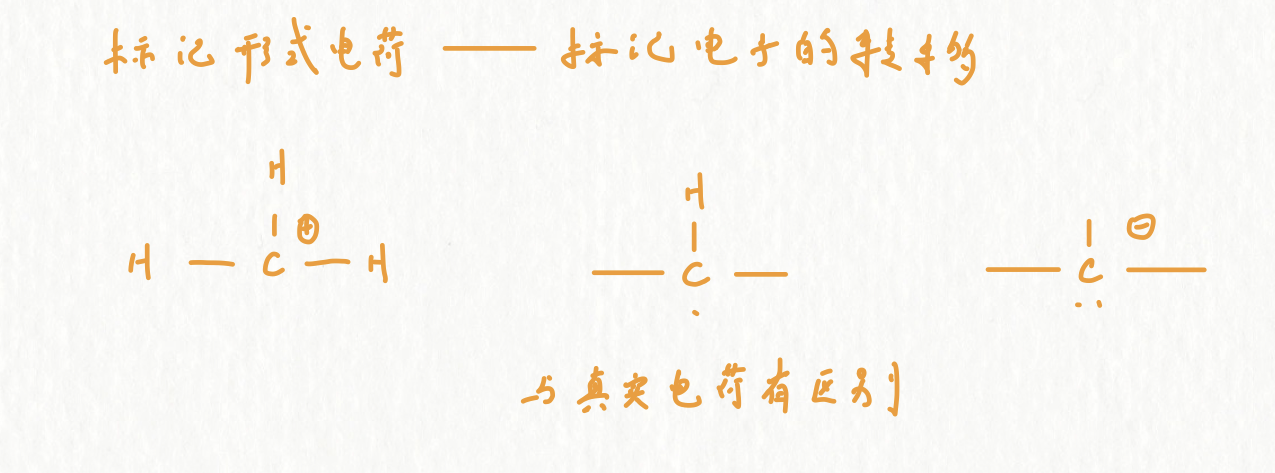 标记形式电荷 —— 标记电子的转移
H
H
⊕
⊖
H — C — H
— C —
— C —
与真实电荷有区别